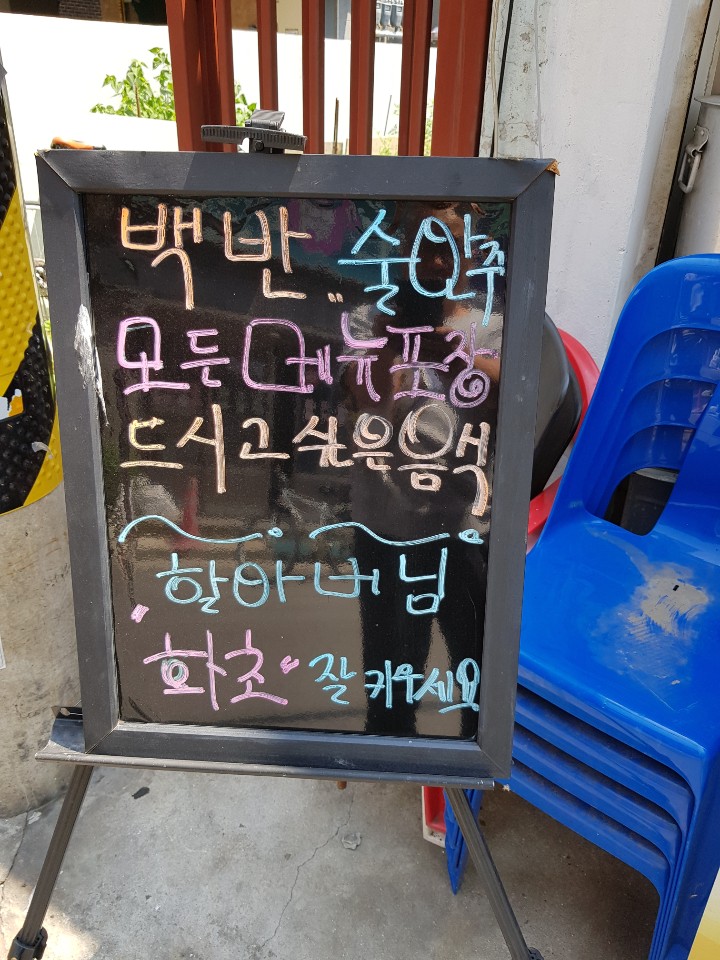 백반 술안주
모든 메뉴 포장
드시고 싶은 음식
할아버님
"화초" 잘 키우세요